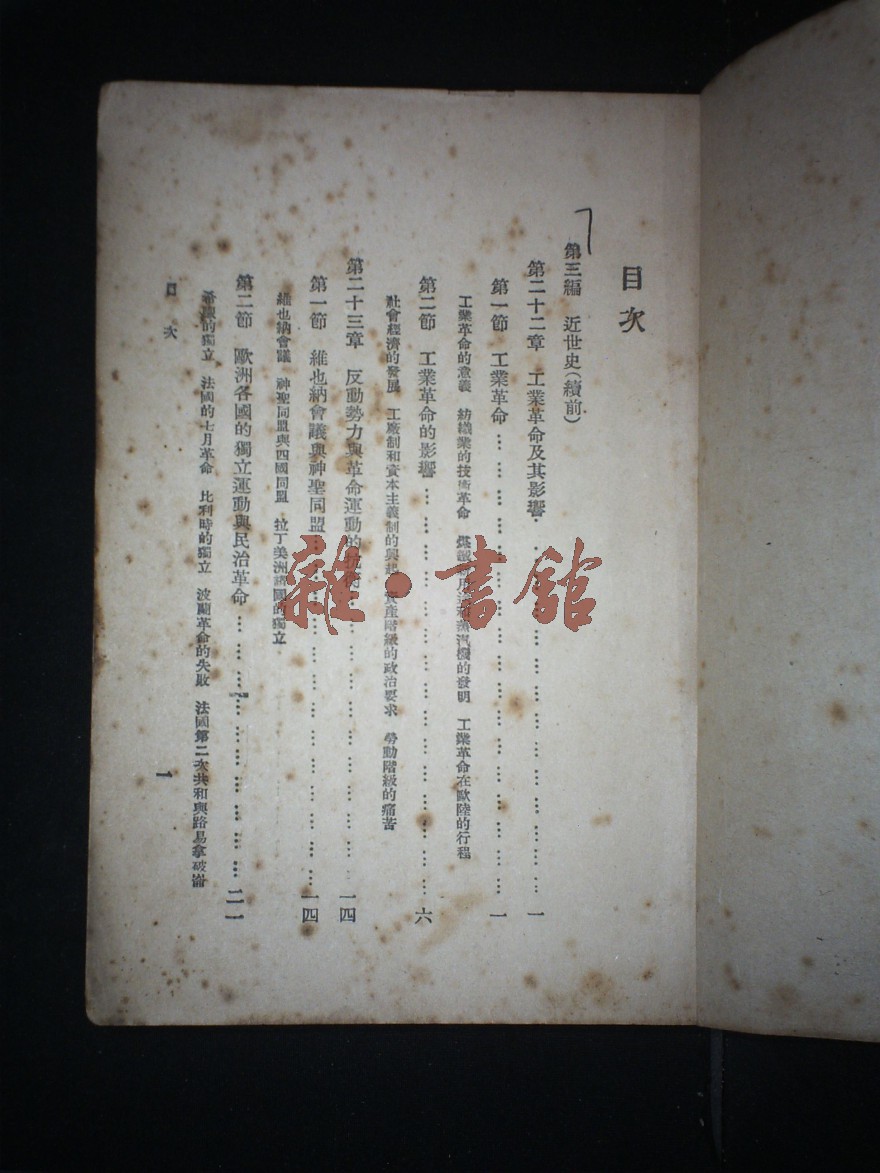 目次
第三編 近世史(續前)
第二十二章 工業革命及其影響………………一
第一節 工業革命………………一
工業革命的意義 紡織業的技術革命 汽機的發明 工業革命在歐陸的行程
第二節 工業革命的影響………………六
社會經濟的發展 工廠制和資本主義制的興起 資產階級的政治要求 勞動階級的痛苦
第二十三章 反動勢力與革命運動的………………一四
第一節 維也納會議與神聖同盟………………一四
維也納會議 神聖同盟與四國同盟 拉丁美洲諸國的獨立
第二節 歐洲各國的獨立運動與民治革命………………二一
希臘的獨立 法國的七月革命 比利時的獨立 波蘭革命的失敗 法國第二次共和與路易拿破崙
目次
一
雜·書館